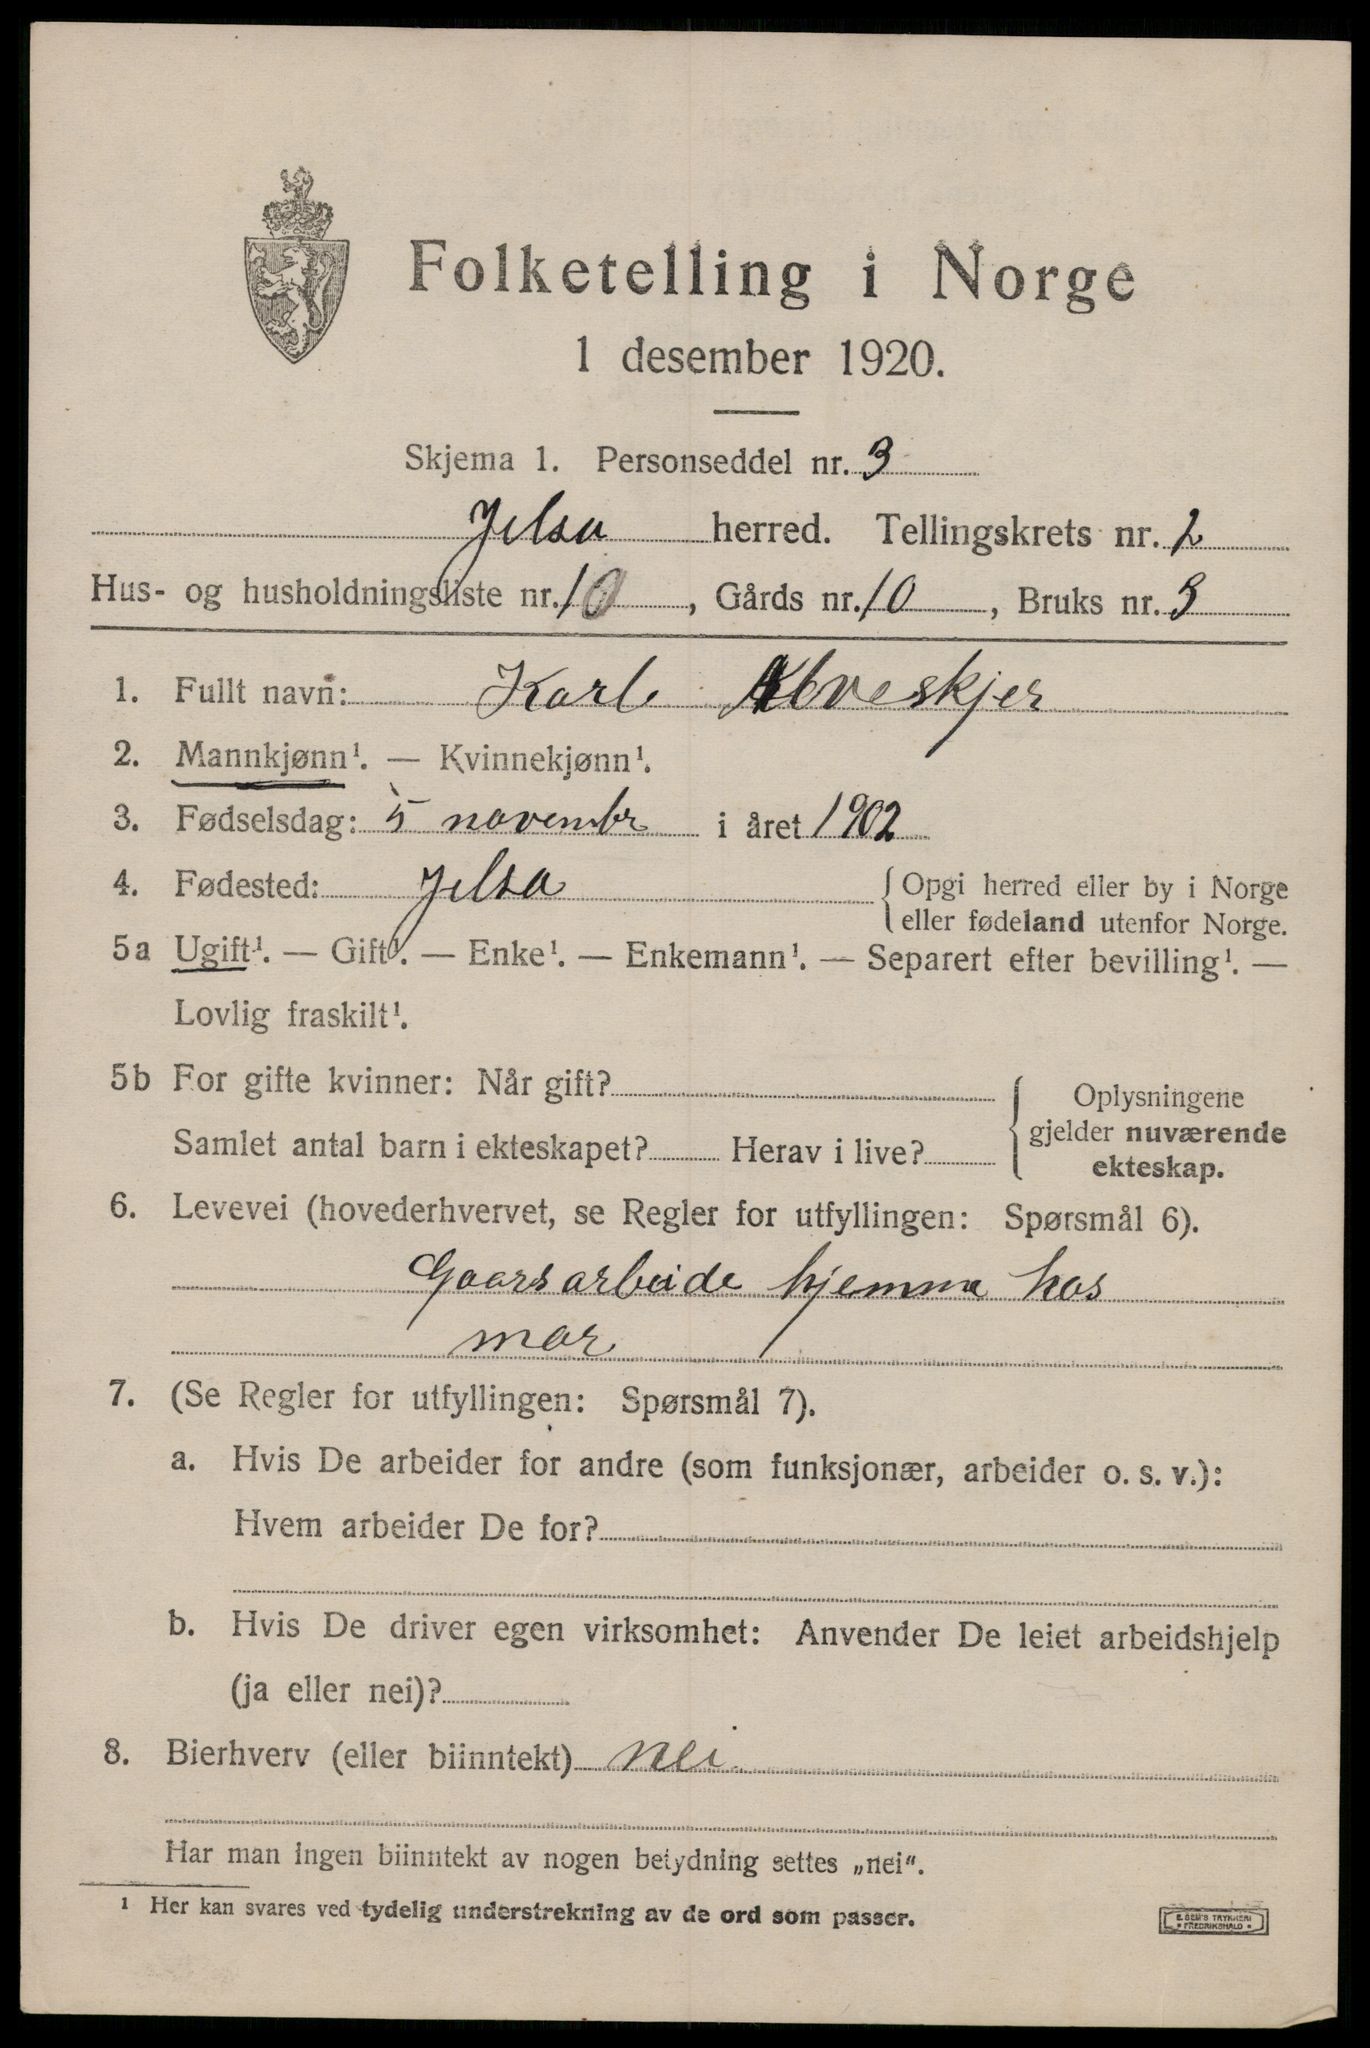 Folketelling i Norge
1 desember 1920.
Skjema 1. Personseddel nr. 3
Jelsa herred. Tellingskrets nr. 2
Hus- og husholdningsliste nr. 10, Gårds nr. 10, Bruks nr. 3
1. Fullt navn: Karl Alveskjer
2. Mannkjønn¹. — Kvinnekjønn¹.
3. Fødselsdag: 5 novembr i året 1902
4. Fødested: Jelsa { Opgi herred eller by i Norge
eller fødeland utenfor Norge.
5a Ugift¹. — Gift¹. — Enke¹. — Enkemann¹. — Separert efter bevilling¹. —
Lovlig fraskilt¹.
5b For gifte kvinner: Når gift? { Oplysningene
gjelder nuværende
ekteskap.
Samlet antal barn i ekteskapet? Herav i live?
6. Levevei (hovederhvervet, se Regler for utfyllingen: Spørsmål 6).
Gaarsarbeide hjemme hos
mor
7. (Se Regler for utfyllingen: Spørsmål 7).
a. Hvis De arbeider for andre (som funksjonær, arbeider o. s. v.):
Hvem arbeider De for?
b. Hvis De driver egen virksomhet: Anvender De leiet arbeidshjelp
(ja eller nei)?
8. Bierhverv (eller biinntekt) nei
Har man ingen biinntekt av nogen betydning settes „nei“.
¹ Her kan svares ved tydelig understrekning av de ord som passer.
E. SEM'S TRYKKERI
* FREDRIKSHALD *